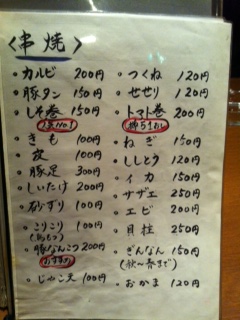 〈串焼〉
・カルビ 200円
・豚タン 150円
・しそ巻 150円
人気No.1
・きも 100円
・皮 100円
・豚足 300円
・しいたけ 200円
・砂ずり 100円
・こりこり 100円
・豚なんこつ 200円
おすすめ
・じゃこ天 100円
・つくね 120円
・せせり 120円
・トマト巻 200円
・ねぎ 150円
・ししとう 120円
・イカ 150円
・サザエ 250円
・エビ 200円
・貝柱 250円
・ぎんなん 150円
(秋〜春まで)
・おかま 120円